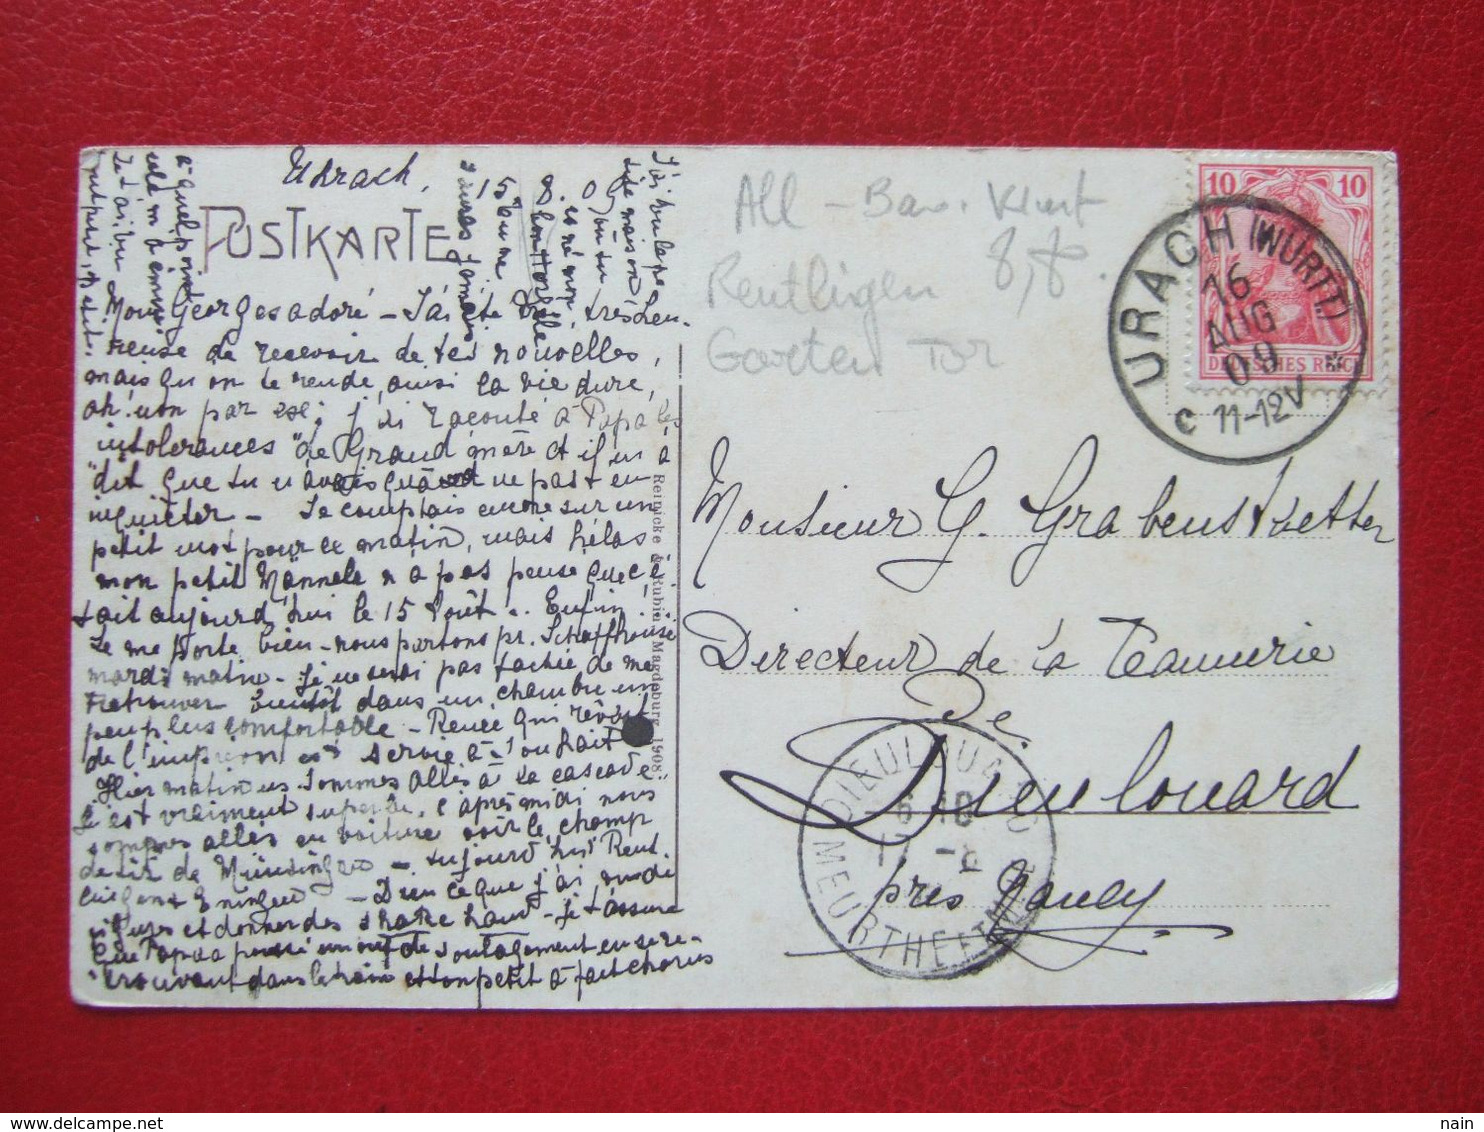 Urach,
POSTKARTE
15. 8. 09
Mon Georges adoré – J'ai été très, très heu-
reuse de recevoir de tes nouvelles,
mais qu'on te rende, ainsi la vie dure,
ah! non par ex: j'ai raconté à Papa les
intolérances de Grand'mère et il m'a
dit que tu n'avais qu'à ne pas t'en
inquiéter – Je comptais encore sur un
petit mot pour ce matin, mais hélas
mon petit Männele n'a pas pensé que c'é-
tait aujourd'hui le 15 Août. Enfin!
Je me porte bien – nous partons pr. Schaffhouse
mardi matin – Je ne serai pas fachée de me
retrouver bientôt dans une chambre un
peu plus comfortable – Renée qui rêvait
de l'imprévu est servie à souhait
Hier matin ns. sommes allés à la cascade
c'est vraiment superbe, l'après midi nous
sommes allés en voiture voir le champ
de tir de Münsingen – aujourd'hui Reut-
lingen et Eningen – Dieu ce que j'ai
shake hand – Je t'assure
que Papa a poussé un ouf de soulagement en se re-
trouvant dans le train et ton petit à fait chorus
Reinicke & Rubin, Magdeburg 1908.
All – Bav. Wurt
Reutligen 8,8.
Garten Tor
10 10
DEUTSCHES REICH
URACH (WÜRTT.)
16
AUG
09
C 11-12V *
Monsieur G. Grabenstætter
Directeur de la Tannerie
De
Dieulouard
près Nancy
DIEULOUARD
17 -8
MEURTHE ET M
nain